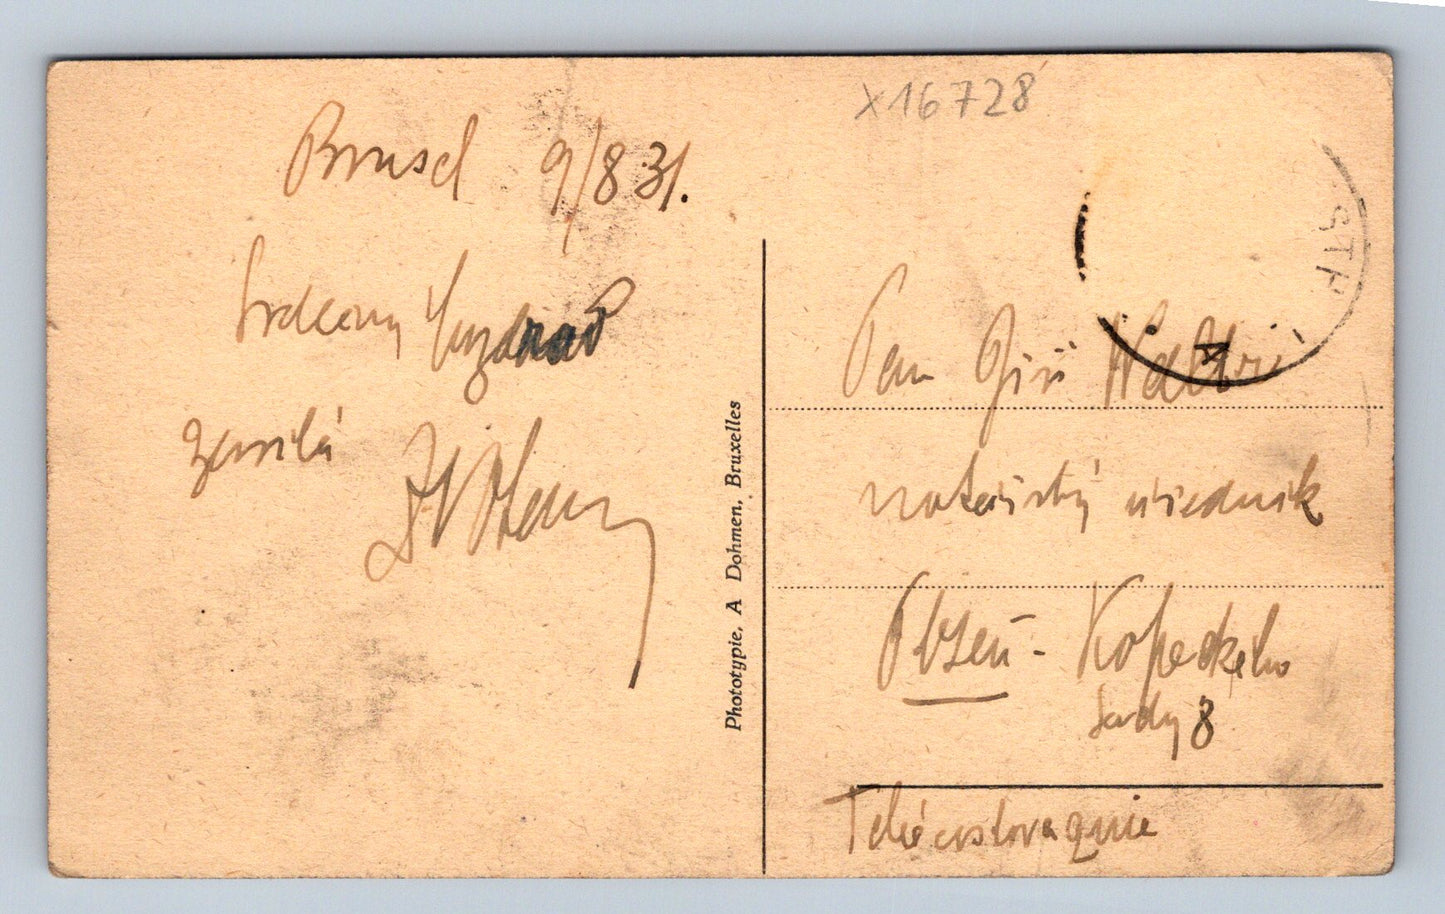 X16728
Brusel 9/8 31.
Srdečný
zasílá
Phototypie, A Dohmen, Bruxelles
Pan Jiří
notářský úředník
Plzeň - Kopeckého
sady 8
Tchécoslovaquie
4